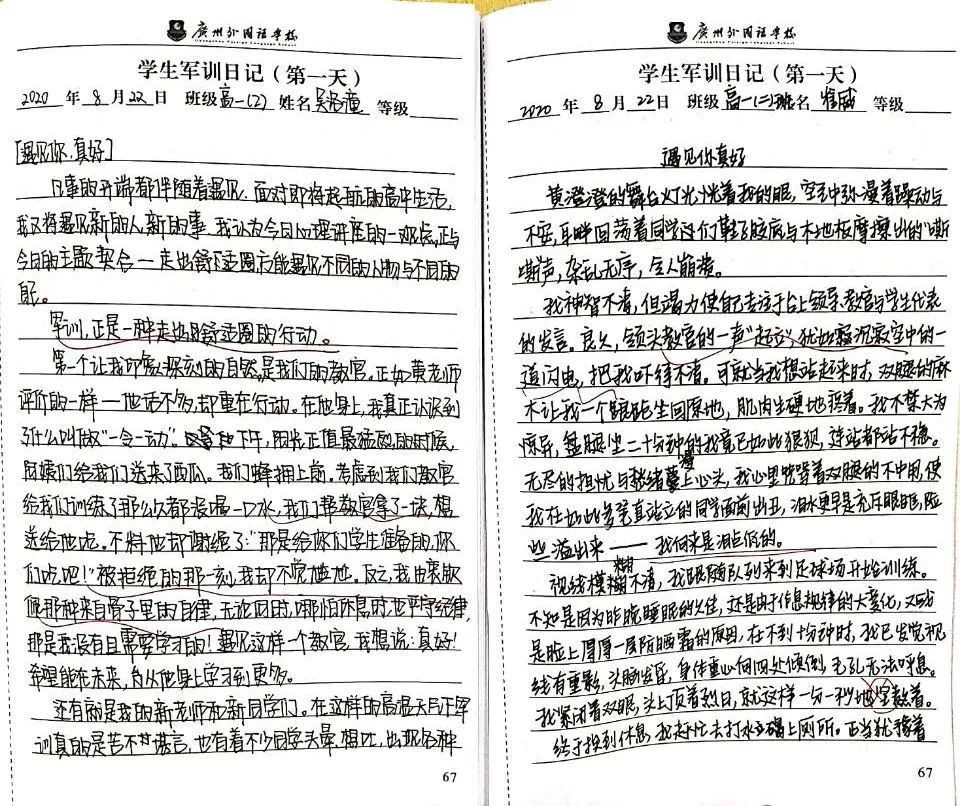 广州外国语学校
学生军训日记（第一天）
2020 年 8 月 22 日 班级 高一(2) 姓名 吴 潼 等级
[遇见你，真好]
凡事的开端都伴随着遇见。面对即将起航的高中生活，
我又将遇见新的人，新的事。我认为今日心理讲座的一观点，正与
今日的主题契合—走出舒适圈，方能遇见不同的人物与不同的
自己。
军训，正是一种走出舒适圈的行动。
第一个让我印象深刻的自然是我们的教官。正如黄老师
评价的一样—他话不多，却重在行动。在他身上，我真正认识到
了什么叫做“一令一动”。下午，阳光正值最猛烈的时候，
阿姨们给我们送来了西瓜。我们蜂拥上前。考虑到我们教官
给我们训练了那么久都没喝一口水，我们帮教官拿了一块，想
送给他吃。不料他却谢绝了：“那是给你们学生准备的，你
们吃吧！”被拒绝的那一刻，我却不觉尴尬。反之，我由衷敬
佩那种来自骨子里的自律，无论何时，哪怕休息时，也严守纪律，
那是我没有且需要学习的！遇见这样一个教官，我想说：真好！
希望能在未来，向从他身上学习到更多。
还有就是我的新老师和新同学们。在这样的高温天气下军
训真的是苦不堪言，也有着不少同学头晕、想吐，出现各种
67
广州外国语学校
学生军训日记（第一天）
2020 年 8 月 22 日 班级 高一(二)班 名 威 等级
遇见你真好
黄澄澄的舞台灯光恍着我的眼，空气中弥漫着躁动与
不安，耳畔回荡着同学们鞋子胶底与木地板摩擦出的“嘶
嘶声，杂乱无序，令人崩溃。
我神智不清，但竭力使自己专注于台上领导、教官与学生代表
的发言。良久，领头教官的一声“起立”犹如沉寂空中的一
道闪电，把我吓得不清。可就当我想站起来时，双腿的麻
木让我一个踉跄坐回原地，肌肉生硬地颤着。我不禁大为
惊异，盘腿坐二十分钟的我竟已如此狼狈，连站都站不稳。
无尽的担忧与愁绪漫上心头，我心里咒骂着双腿的不中用，使
我在如此多笔直站立的同学面前出丑，泪水更早是充斥眼眶，险
些溢出来——我向来是泪点低的。
视线模糊不清，我跟随队列来到足球场开始训练。
不知是因为昨晚睡眠的欠佳，还是由于作息规律的大变化，又或
是脸上厚厚一层防晒霜的原因，在不到十分钟时，我已发觉视
线有重影，头脑发昏，身体重心向四处倾倒，毛孔无法呼息。
我紧闭着双眼，头上顶着烈日，就这样一分一秒地着。
终于挨到休息，我赶忙去打水并上厕所。正当犹豫着
67